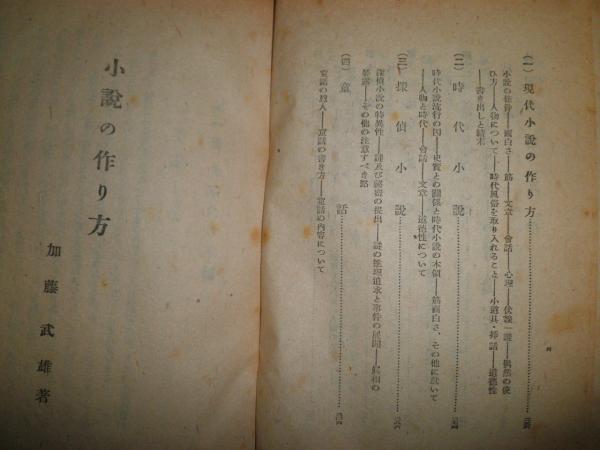 (一) 現代小說の作り方
小說の秘密――面白さ――筋――文章――會話――心理――伏線――偶然の使
ひ方――人物について――時代風俗を取り入れること――小道具・挿話――道德性
――書き出しと結末
(二) 時代小說
時代小說流行の因――史實との關係と時代小說の本領――筋面白さ、その他に就いて
――人物と時代――會話――文章――道德性について
(三) 探偵小說
探偵小說の特異性――謎及び秘密の提出――謎の推理追求と事件の展開――眞相の
暴露――その他の注意すべき點
(四) 童話
童話の惱入――童話の書き方――童話の內容について
小說の作り方
加藤武雄著